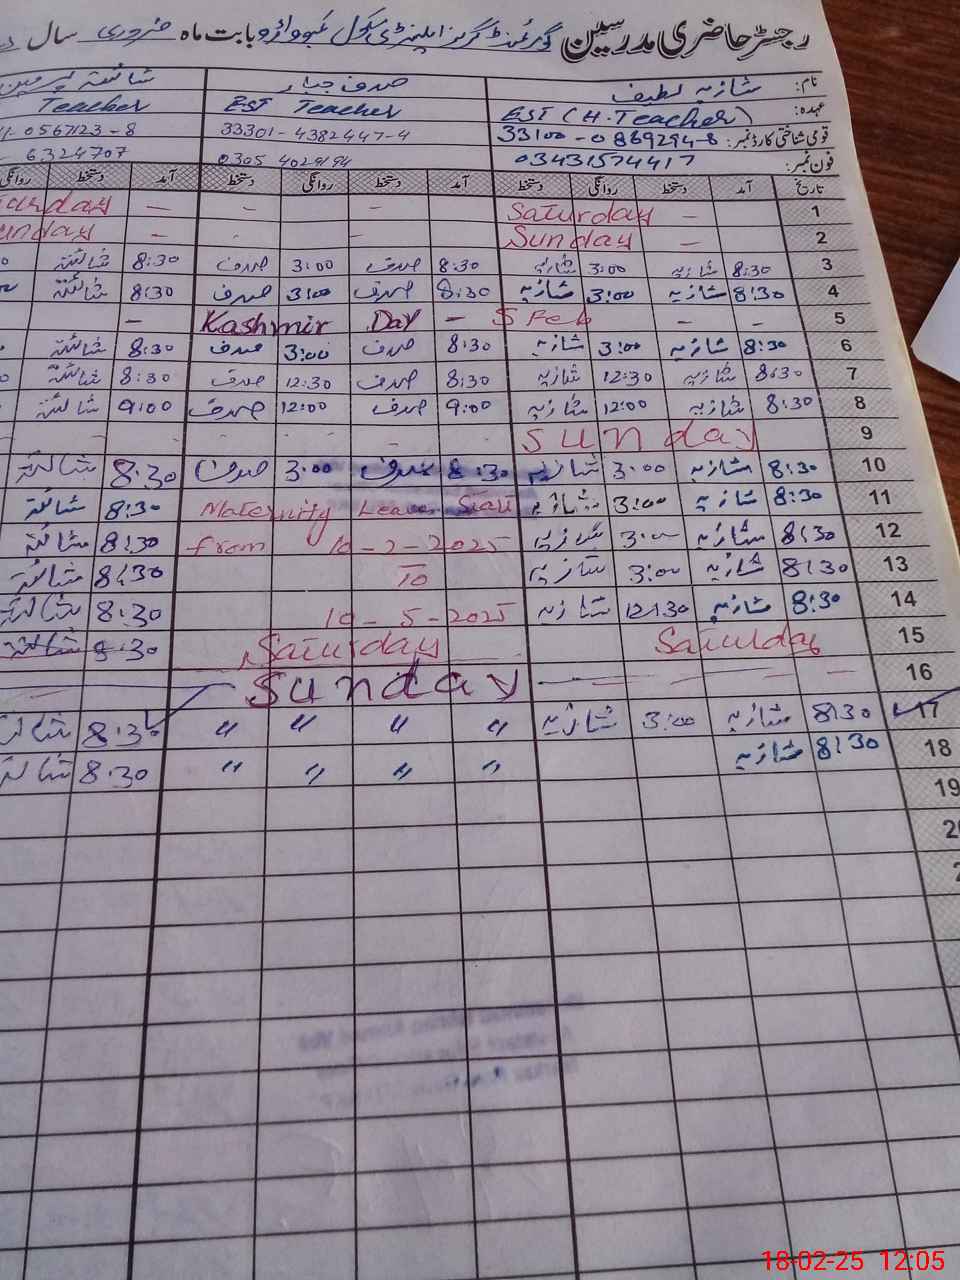 رجسٹر حاضری مدرسین گورنمنٹ گرلز ایلیمنٹری سکول بابت ماہ فروری سال
نام: شازیہ لطیف صدف جبار شائستہ
عہدہ: EST (H.Teacher) EST Teacher Teacher
قومی شناختی کارڈ نمبر: 33100-0869294-8 33301-4382447-4 0567123-8
فون نمبر: 03431574417 0305 4029194 6324707
تاریخ آمد دستخط روانگی دستخط آمد دستخط روانگی دستخط آمد دستخط روانگی
1 - Saturday - - - urday
2 - Sunday - - - unday
3 8:30 شازیہ 3:00 شازیہ 8:30 صدف 3:00 صدف 8:30 شائستہ
4 8:30 شازیہ 3:00 شازیہ 8:30 صدف 3:00 صدف 8:30 شائستہ
5 - - 5 Feb - Kashmir Day -
6 8:30 شازیہ 3:00 شازیہ 8:30 صدف 3:00 صدف 8:30 شائستہ
7 8:30 شازیہ 12:30 شازیہ 8:30 صدف 12:30 صدف 8:30 شائستہ
8 8:30 شازیہ 12:00 شازیہ 9:00 صدف 12:00 صدف 9:00 شائستہ
9 Sunday - - - -
10 8:30 شازیہ 3:00 شازیہ 8:30 صدف 3:00 صدف 8:30 شائستہ
11 8:30 شازیہ 3:00 شازیہ Maternity Leave 8:30 شائستہ
12 8:30 شازیہ 3:00 شازیہ from 10-2-2025 8:30 شائستہ
13 8:30 شازیہ 3:00 شازیہ To 8:30 شائستہ
14 8:30 شازیہ 12:30 شازیہ 10-5-2025 8:30 شائستہ
15 Saturday Saturday 8:30 شائستہ
16 - - - - Sunday
17 8:30 شازیہ 3:00 شازیہ " " " " 8:30 شائستہ
18 8:30 شازیہ " " " " 8:30 شائستہ
19
18-02-25 12:05